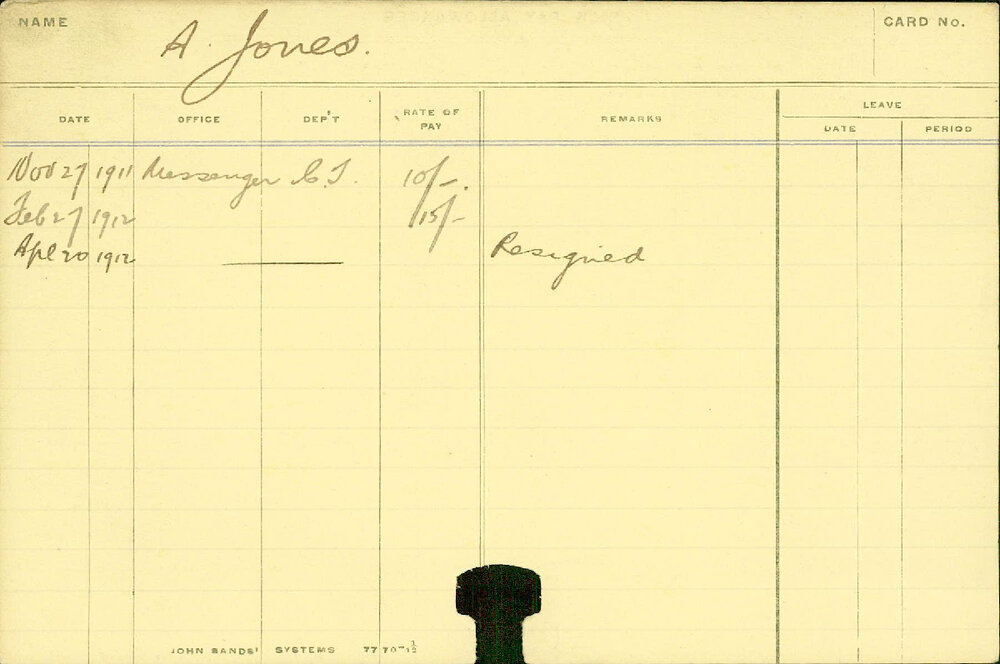 NAME A. Jones. CARD No.
LEAVE
DATE OFFICE DEP'T RATE OF PAY REMARKS DATE PERIOD
Nov 27 1911 Messenger 10/-.
Feb 27 1912 15/-
Apl 20 1912 Resigned
JOHN SANDS' SYSTEMS